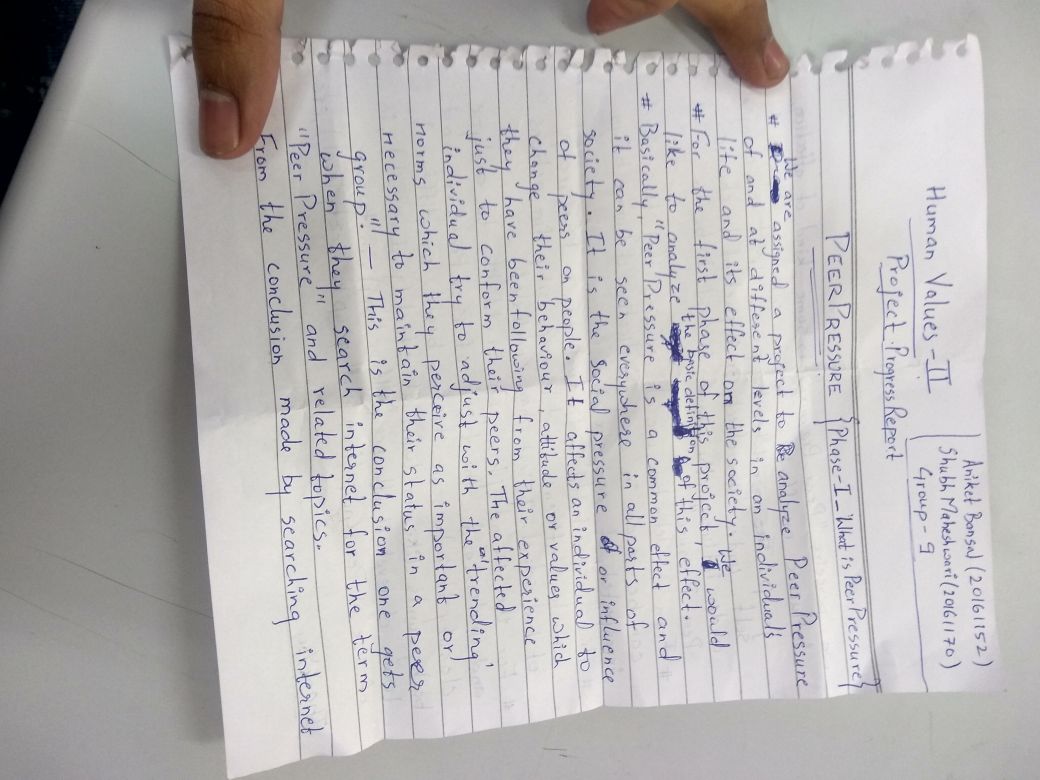 Aniket Bansal (20161152)
Shubh Maheshwari (20161170)
Human Values - II
Group - 9
Project Progress Report
PEER PRESSURE {Phase-I - What is Peer Pressure}
# We are assigned a project to analyze Peer Pressure
of and at different levels in an individuals
life and its effect on the society. We
# For the first phase of this project, would
like to analyze the basic definition of this effect.
# Basically, "Peer Pressure is a common effect and
it can be seen everywhere in all parts of
society. It is the social pressure or influence
of peers on people. It affects an individual to
change their behaviour, attitude or values which
they have been following from their experience
just to conform their peers. The affected
individual try to adjust with the "trending"
norms which they perceive as important or
necessary to maintain their status in a peer
group." — This is the conclusion one gets
when "they" search internet for the term
"Peer Pressure" and related topics.
From the conclusion made by searching internet